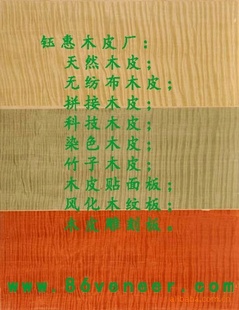 钰惠木皮厂；
天然木皮；
无纺布木皮；
拼接木皮；
科技木皮；
染色木皮；
竹子木皮；
木皮贴面板；
风化木纹板；
木皮雕刻板。
www.86vaneer.com